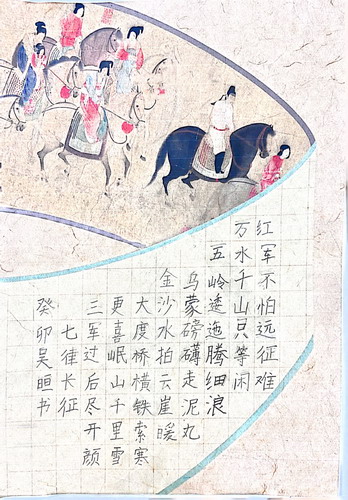 红军不怕远征难
万水千山只等闲
五岭逶迤腾细浪
乌蒙磅礴走泥丸
金沙水拍云崖暖
大度桥横铁索寒
更喜岷山千里雪
三军过后尽开颜
七律长征
癸卯吴晅书